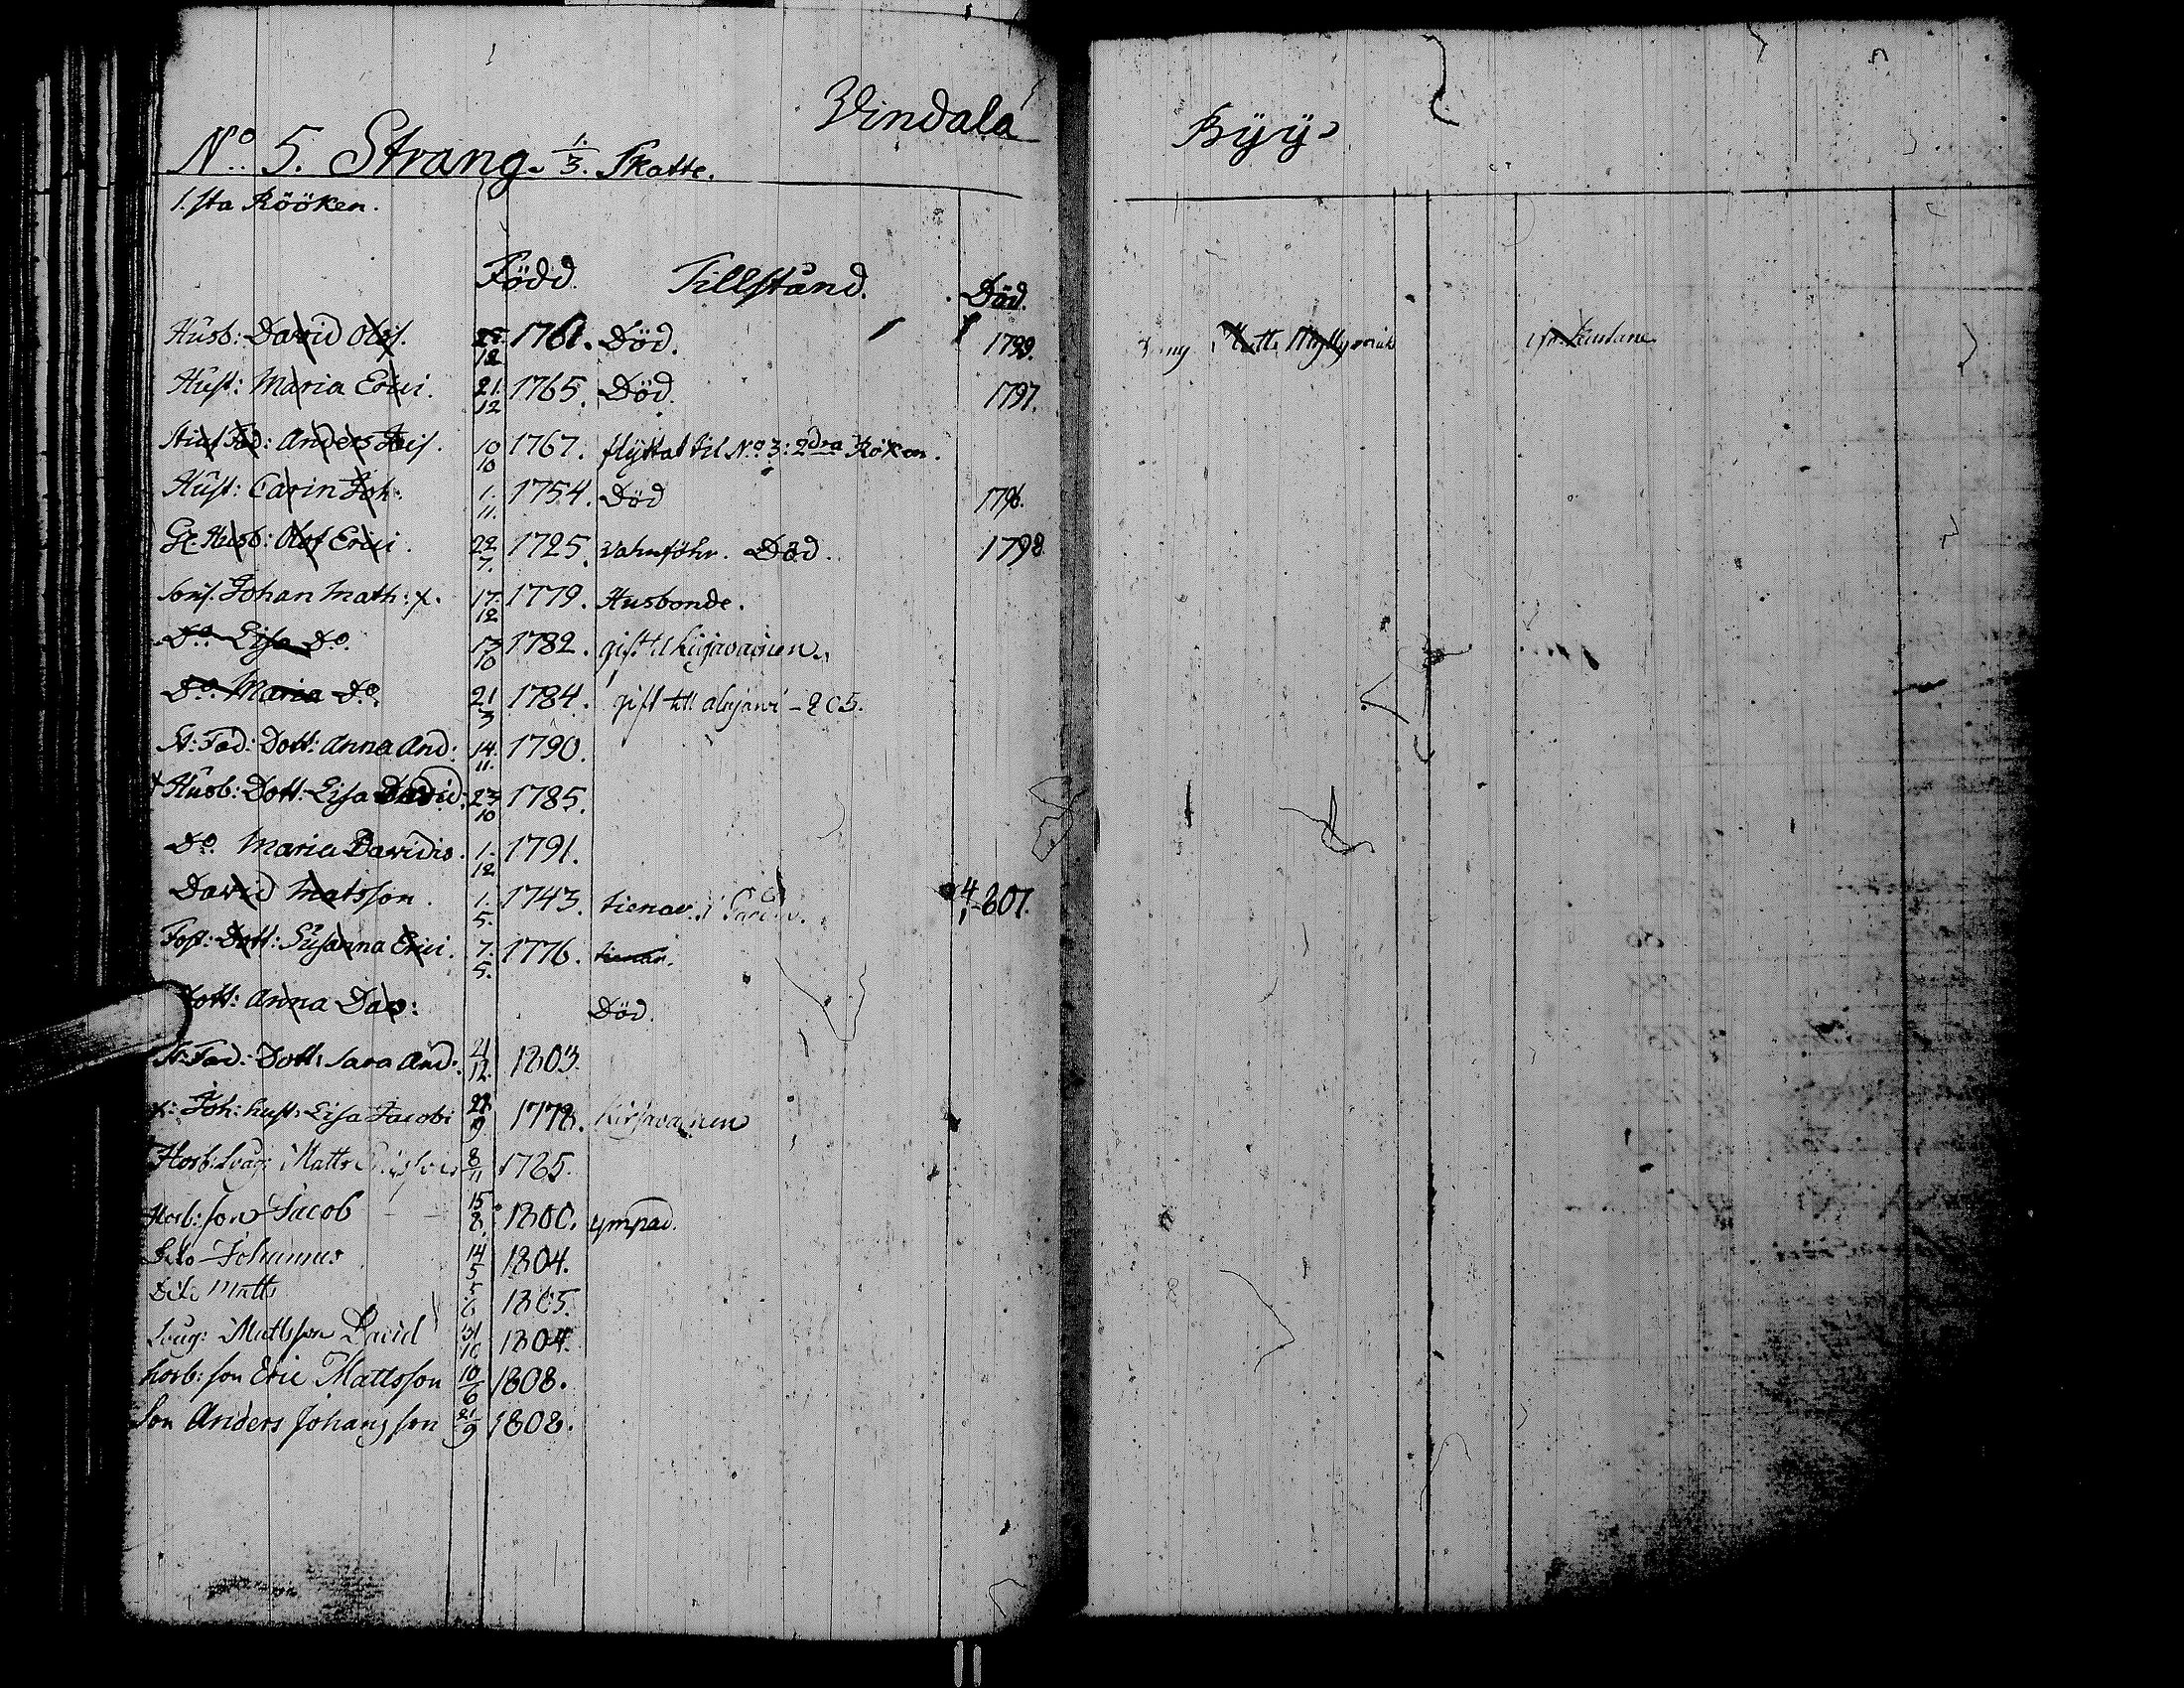 Vindala Byÿ
No: 5. Strang. 1/3. Skatte.
1.sta Röök​en.
Född. Tillstånd. Död.
Husb: David Olofs. 12 1761. Död. 1799.
Hust: Maria Erici. 21/12 1765. Död. 1797.
Anders 10/10 1767. flyttat til No 3: 2dra Röken.
Hust: Carin Joh: 1./11. 1754. Död 1796.
Gl. Husb: Olof Erici. 22/7. 1725. Död. 1798
Sons. Johan Math: x. 17./12 1779. Husbonde.
Do Lisa Do. 13/10 1782. gift til
Do. Maria Do. 21/3 1784. gift till
St: Fad: Dott: Anna And: 14./11. 1790.
Husb: Dott: Lisa David: 23/10 1785.
Do. Maria Davidis. 1./12 1791.
David Matsson. 1./5. 1743. tienar.
Fost: Dott: Susanna Erici. 7./5. 1776. tienar.
Dott: Anna Dav: Död.
St: Fad: Dott: Sara And: 21/12. 1803.
x: Joh: hust: Lisa Jacobi 9 1778.
Matts 8/11 1785.
Hosb: son Jacob 15/8. 1800. ympad.
Dito Johannes 14/5 1804.
Dito Matts 5/6 1805.
Svåg: Mattsson David 31/10 1804.
hosb: son Eric Mattsson 10/6 1808.
Son Anders Johansson 21/9 1808.